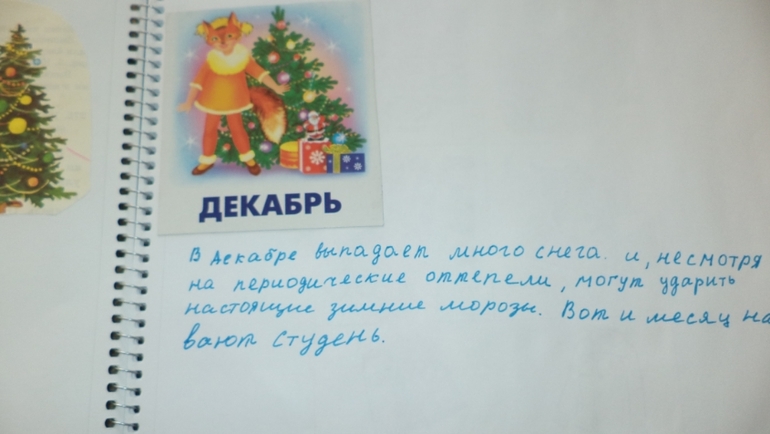 ДЕКАБРЬ
В декабре выпадает много снега. и, несмотря
на периодические оттепели, могут ударить
настоящие зимние морозы. Вот и месяц на
вают студень.